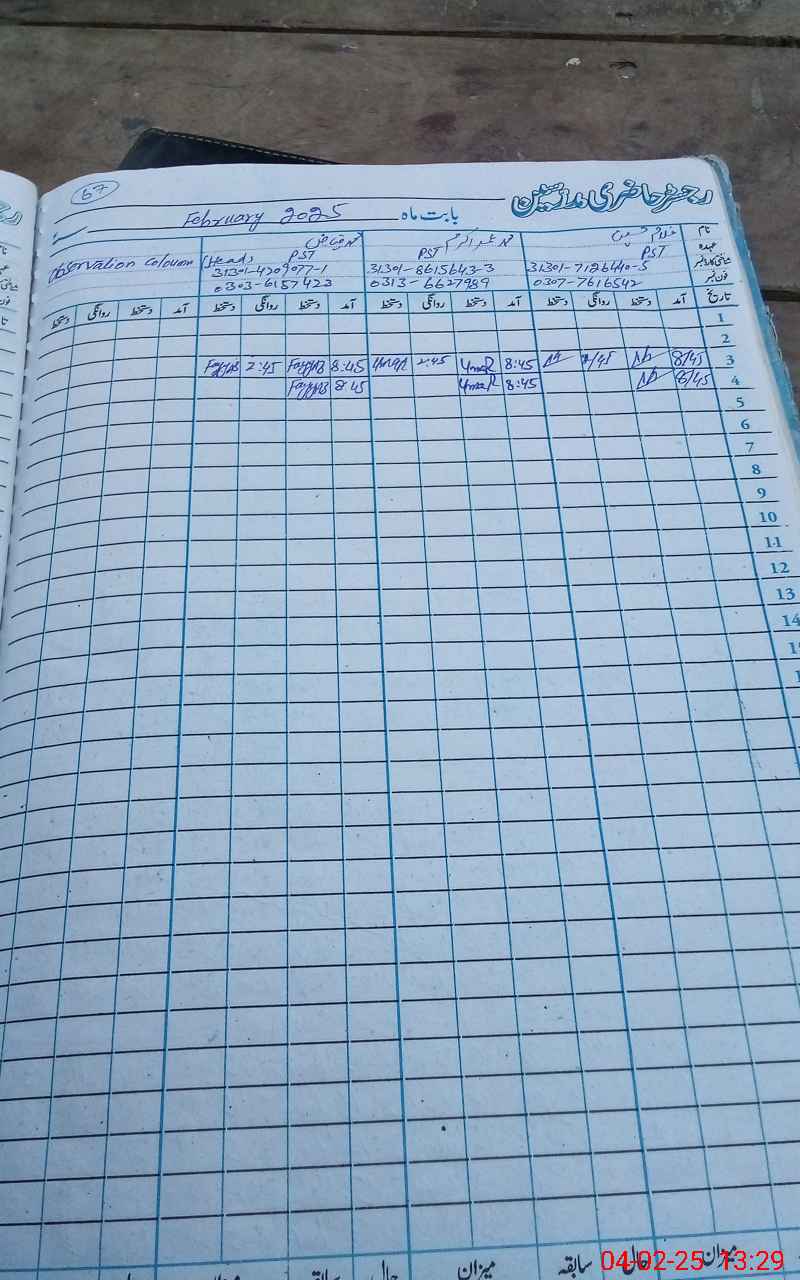 67
رجسٹر حاضری مدرسین
بابت ماہ February 2025
نام
عہدہ
شناختی کارڈ نمبر
فون نمبر
غلام حسین
PST
31301-7126440-5
0307-7616542
محمد عمر اکرم
PST
31301-8615643-3
0313-6627989
محمد فیاض
(Head) PST
31301-4209077-1
0303-6157423
Observation Coloumn
تاریخ آمد دستخط روانگی دستخط آمد دستخط روانگی دستخط آمد دستخط روانگی دستخط آمد دستخط روانگی دستخط
1
2
3 8/45 2/45 8:45 Umar 2:45 Umar 8:45 Fayyaz 2:45 Fayyaz
4 8/45 8:45 Umar 8:45 Fayyaz
5
6
7
8
9
10
11
12
13
14
میزان حال سابقہ میزان حال
04-02-25 13:29